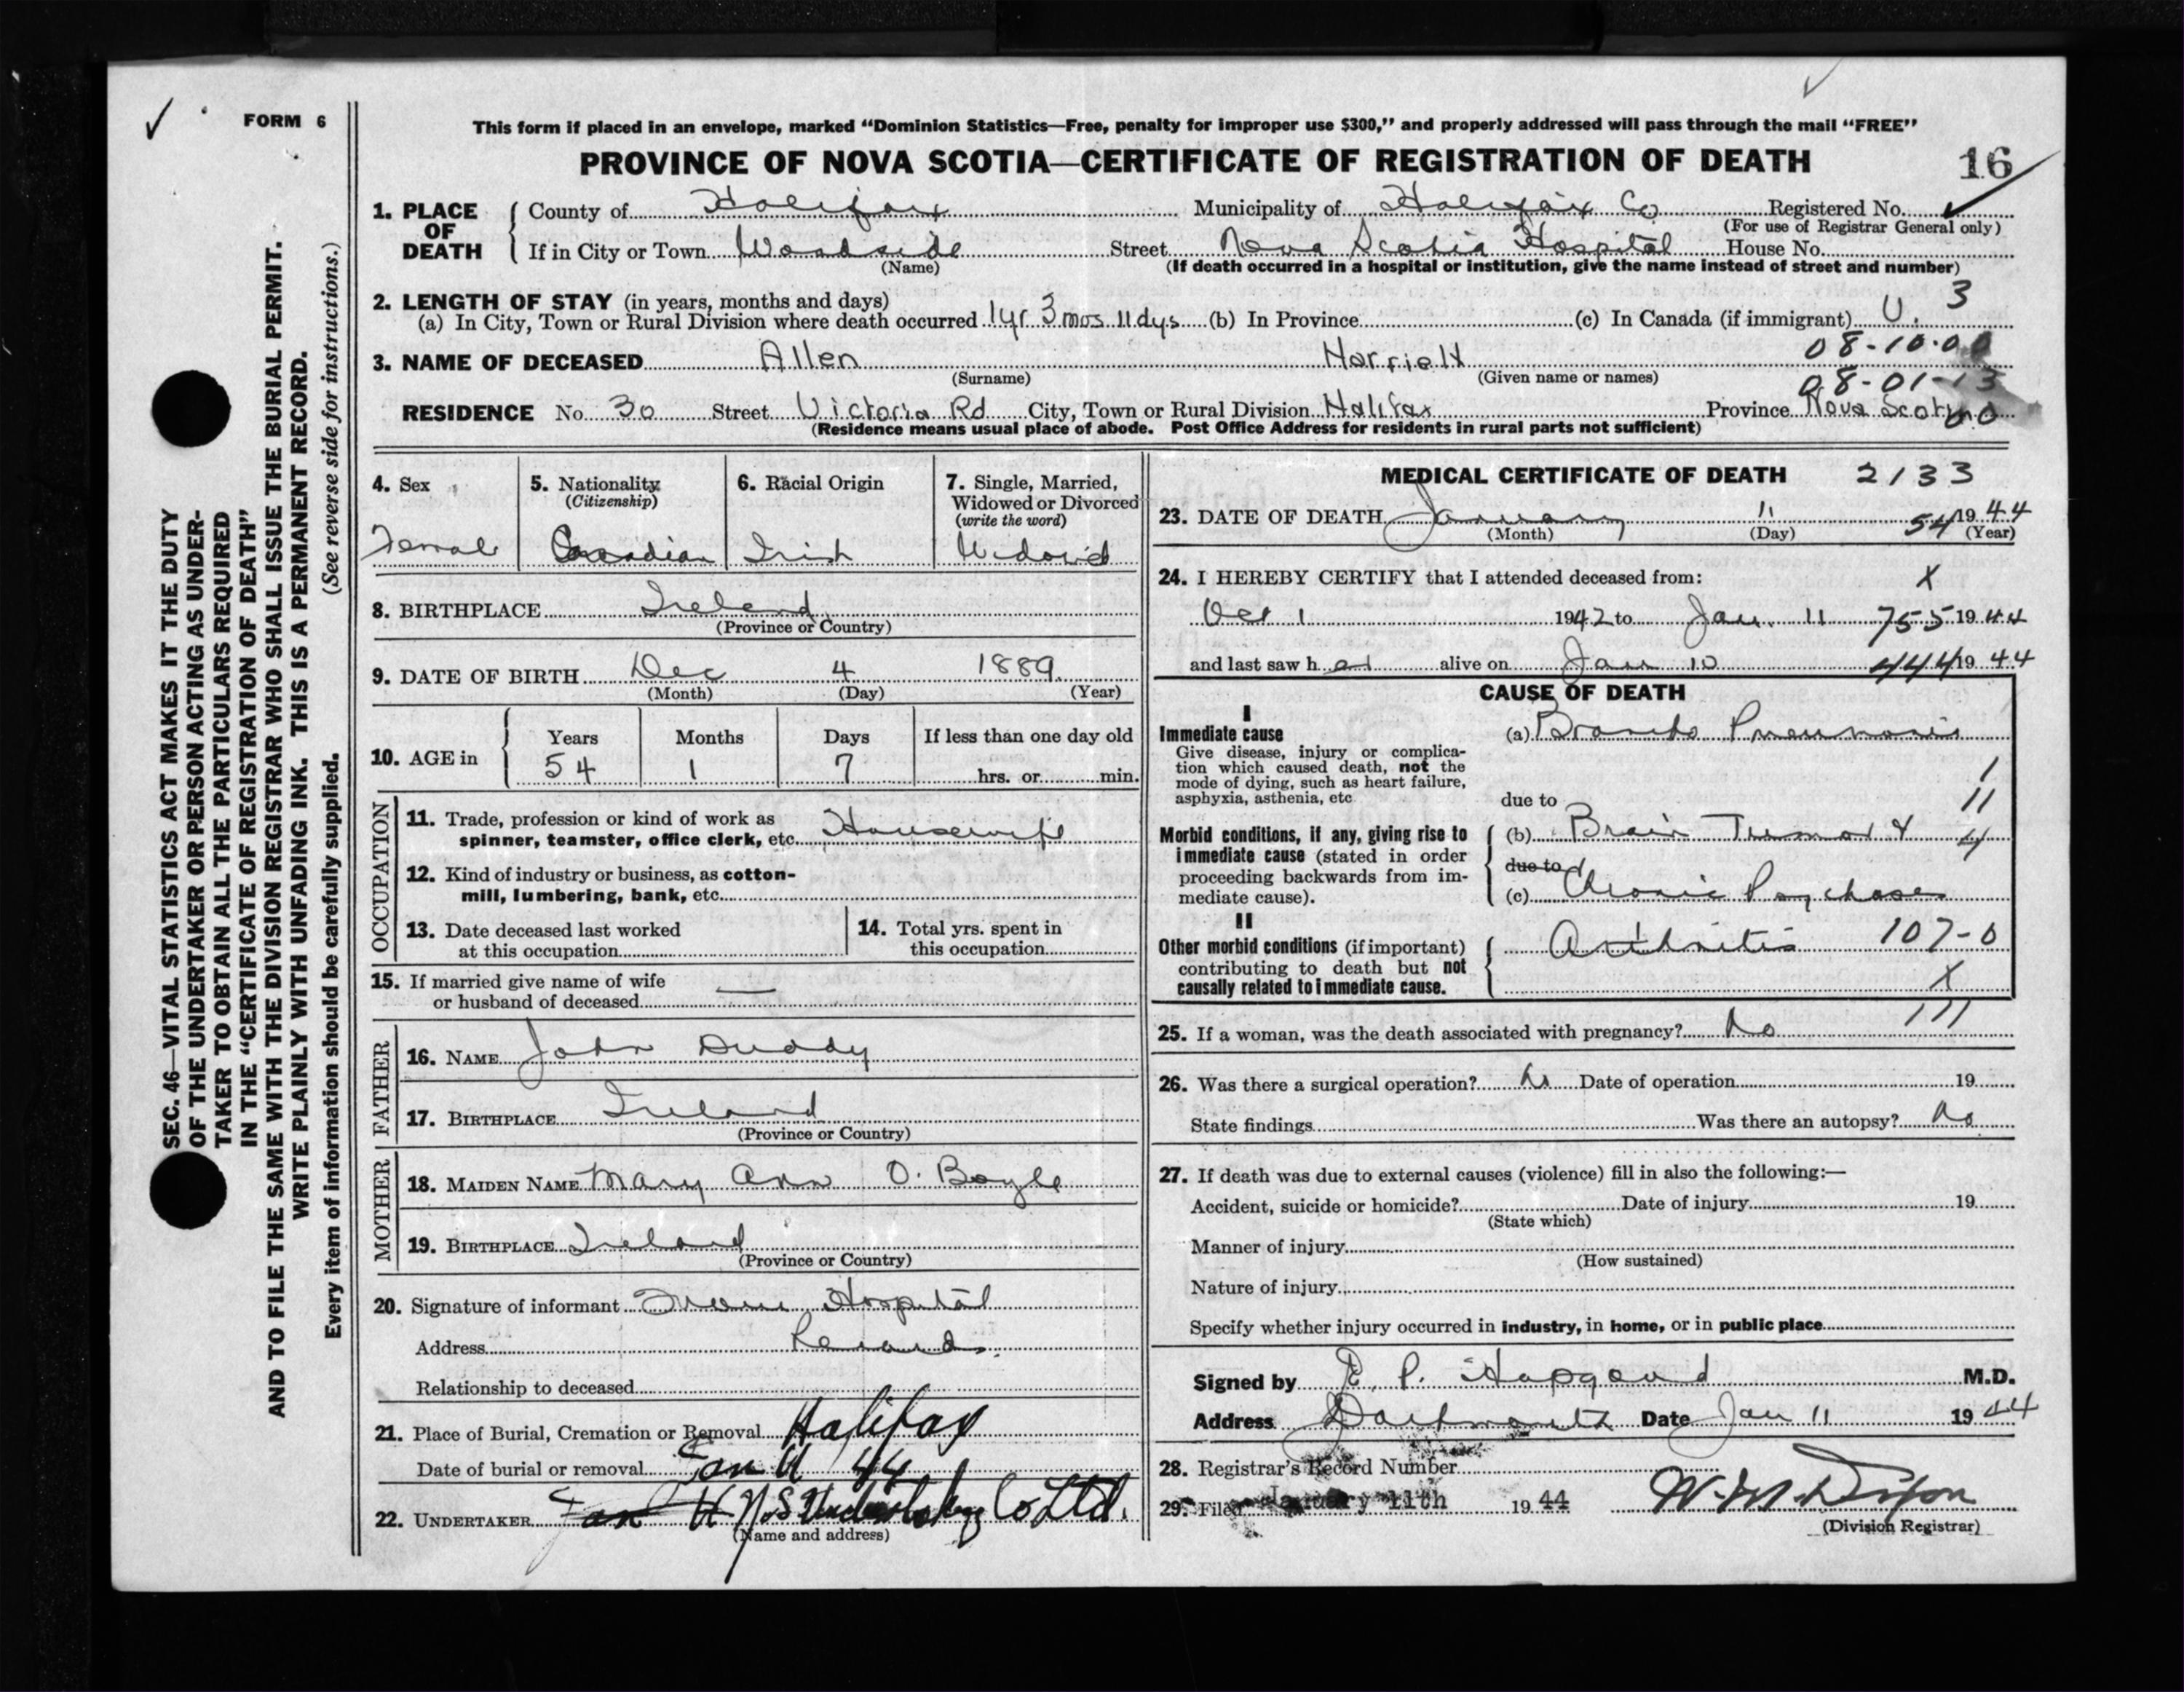 FORM 6
This form if placed in an envelope, marked “Dominion Statistics—Free, penalty for improper use $300,” and properly addressed will pass through the mail “FREE”
PROVINCE OF NOVA SCOTIA—CERTIFICATE OF REGISTRATION OF DEATH
16
SEC. 46—VITAL STATISTICS ACT MAKES IT THE DUTY
OF THE UNDERTAKER OR PERSON ACTING AS UNDER-
TAKER TO OBTAIN ALL THE PARTICULARS REQUIRED
IN THE “CERTIFICATE OF REGISTRATION OF DEATH”
AND TO FILE THE SAME WITH THE DIVISION REGISTRAR WHO SHALL ISSUE THE BURIAL PERMIT.
WRITE PLAINLY WITH UNFADING INK. THIS IS A PERMANENT RECORD.
Every item of information should be carefully supplied. (See reverse side for instructions.)
1. PLACE OF DEATH
County of Halifax Municipality of Halifax Co Registered No.
(For use of Registrar General only)
If in City or Town Woodside Street Nova Scotia Hospital House No.
(Name) (If death occurred in a hospital or institution, give the name instead of street and number)
2. LENGTH OF STAY (in years, months and days) 3
(a) In City, Town or Rural Division where death occurred 1yr 3mos 11dys (b) In Province (c) In Canada (if immigrant) U.
08-10-00
3. NAME OF DECEASED Allen Harriett
(Surname) (Given name or names)
08-01-13
RESIDENCE No. 30 Street Victoria Rd City, Town or Rural Division Halifax Province Nova Scotia
(Residence means usual place of abode. Post Office Address for residents in rural parts not sufficient)
4. Sex
Female
5. Nationality
(Citizenship)
Canadian
6. Racial Origin
Irish
7. Single, Married,
Widowed or Divorced
(write the word)
Widowed
8. BIRTHPLACE Ireland
(Province or Country)
9. DATE OF BIRTH Dec 4 1889
(Month) (Day) (Year)
10. AGE in
Years Months Days If less than one day old
54 1 7 hrs. or min.
OCCUPATION
11. Trade, profession or kind of work as
spinner, teamster, office clerk, etc. Housewife
12. Kind of industry or business, as cotton-
mill, lumbering, bank, etc.
13. Date deceased last worked
at this occupation
14. Total yrs. spent in
this occupation
15. If married give name of wife
or husband of deceased —
FATHER
16. NAME John Duddy
17. BIRTHPLACE Ireland
(Province or Country)
MOTHER
18. MAIDEN NAME Mary Ann O. Boyle
19. BIRTHPLACE Ireland
(Province or Country)
20. Signature of informant From Hospital
Address Records.
Relationship to deceased
21. Place of Burial, Cremation or Removal Halifax
Date of burial or removal Jan 11 44
22. UNDERTAKER Jan 11 N.S Undertaking Co Ltd.
(Name and address)
MEDICAL CERTIFICATE OF DEATH 2133
23. DATE OF DEATH January 11 54 1944
(Month) (Day) (Year)
24. I HEREBY CERTIFY that I attended deceased from: X
Oct 1 1942 to Jan. 11 755 1944
and last saw her alive on Jan 10 444 1944
CAUSE OF DEATH
I
Immediate cause
Give disease, injury or complica-
tion which caused death, not the
mode of dying, such as heart failure,
asphyxia, asthenia, etc
(a) Broncho Pneumonia
1
due to 11
Morbid conditions, if any, giving rise to
immediate cause (stated in order
proceeding backwards from im-
mediate cause).
(b) Brain Tumor &
due to
(c) Chronic Psychoses
II
Other morbid conditions (if important)
contributing to death but not
causally related to immediate cause.
Arthritis 107-0
X
111
25. If a woman, was the death associated with pregnancy? No
26. Was there a surgical operation? No Date of operation 19
State findings Was there an autopsy? No
27. If death was due to external causes (violence) fill in also the following:—
Accident, suicide or homicide? Date of injury 19
(State which)
Manner of injury
(How sustained)
Nature of injury
Specify whether injury occurred in industry, in home, or in public place
Signed by E. P. Hapgood M.D.
Address Dartmouth Date Jan 11 1944
28. Registrar's Record Number
29. Filed January 11th 1944
(Division Registrar)